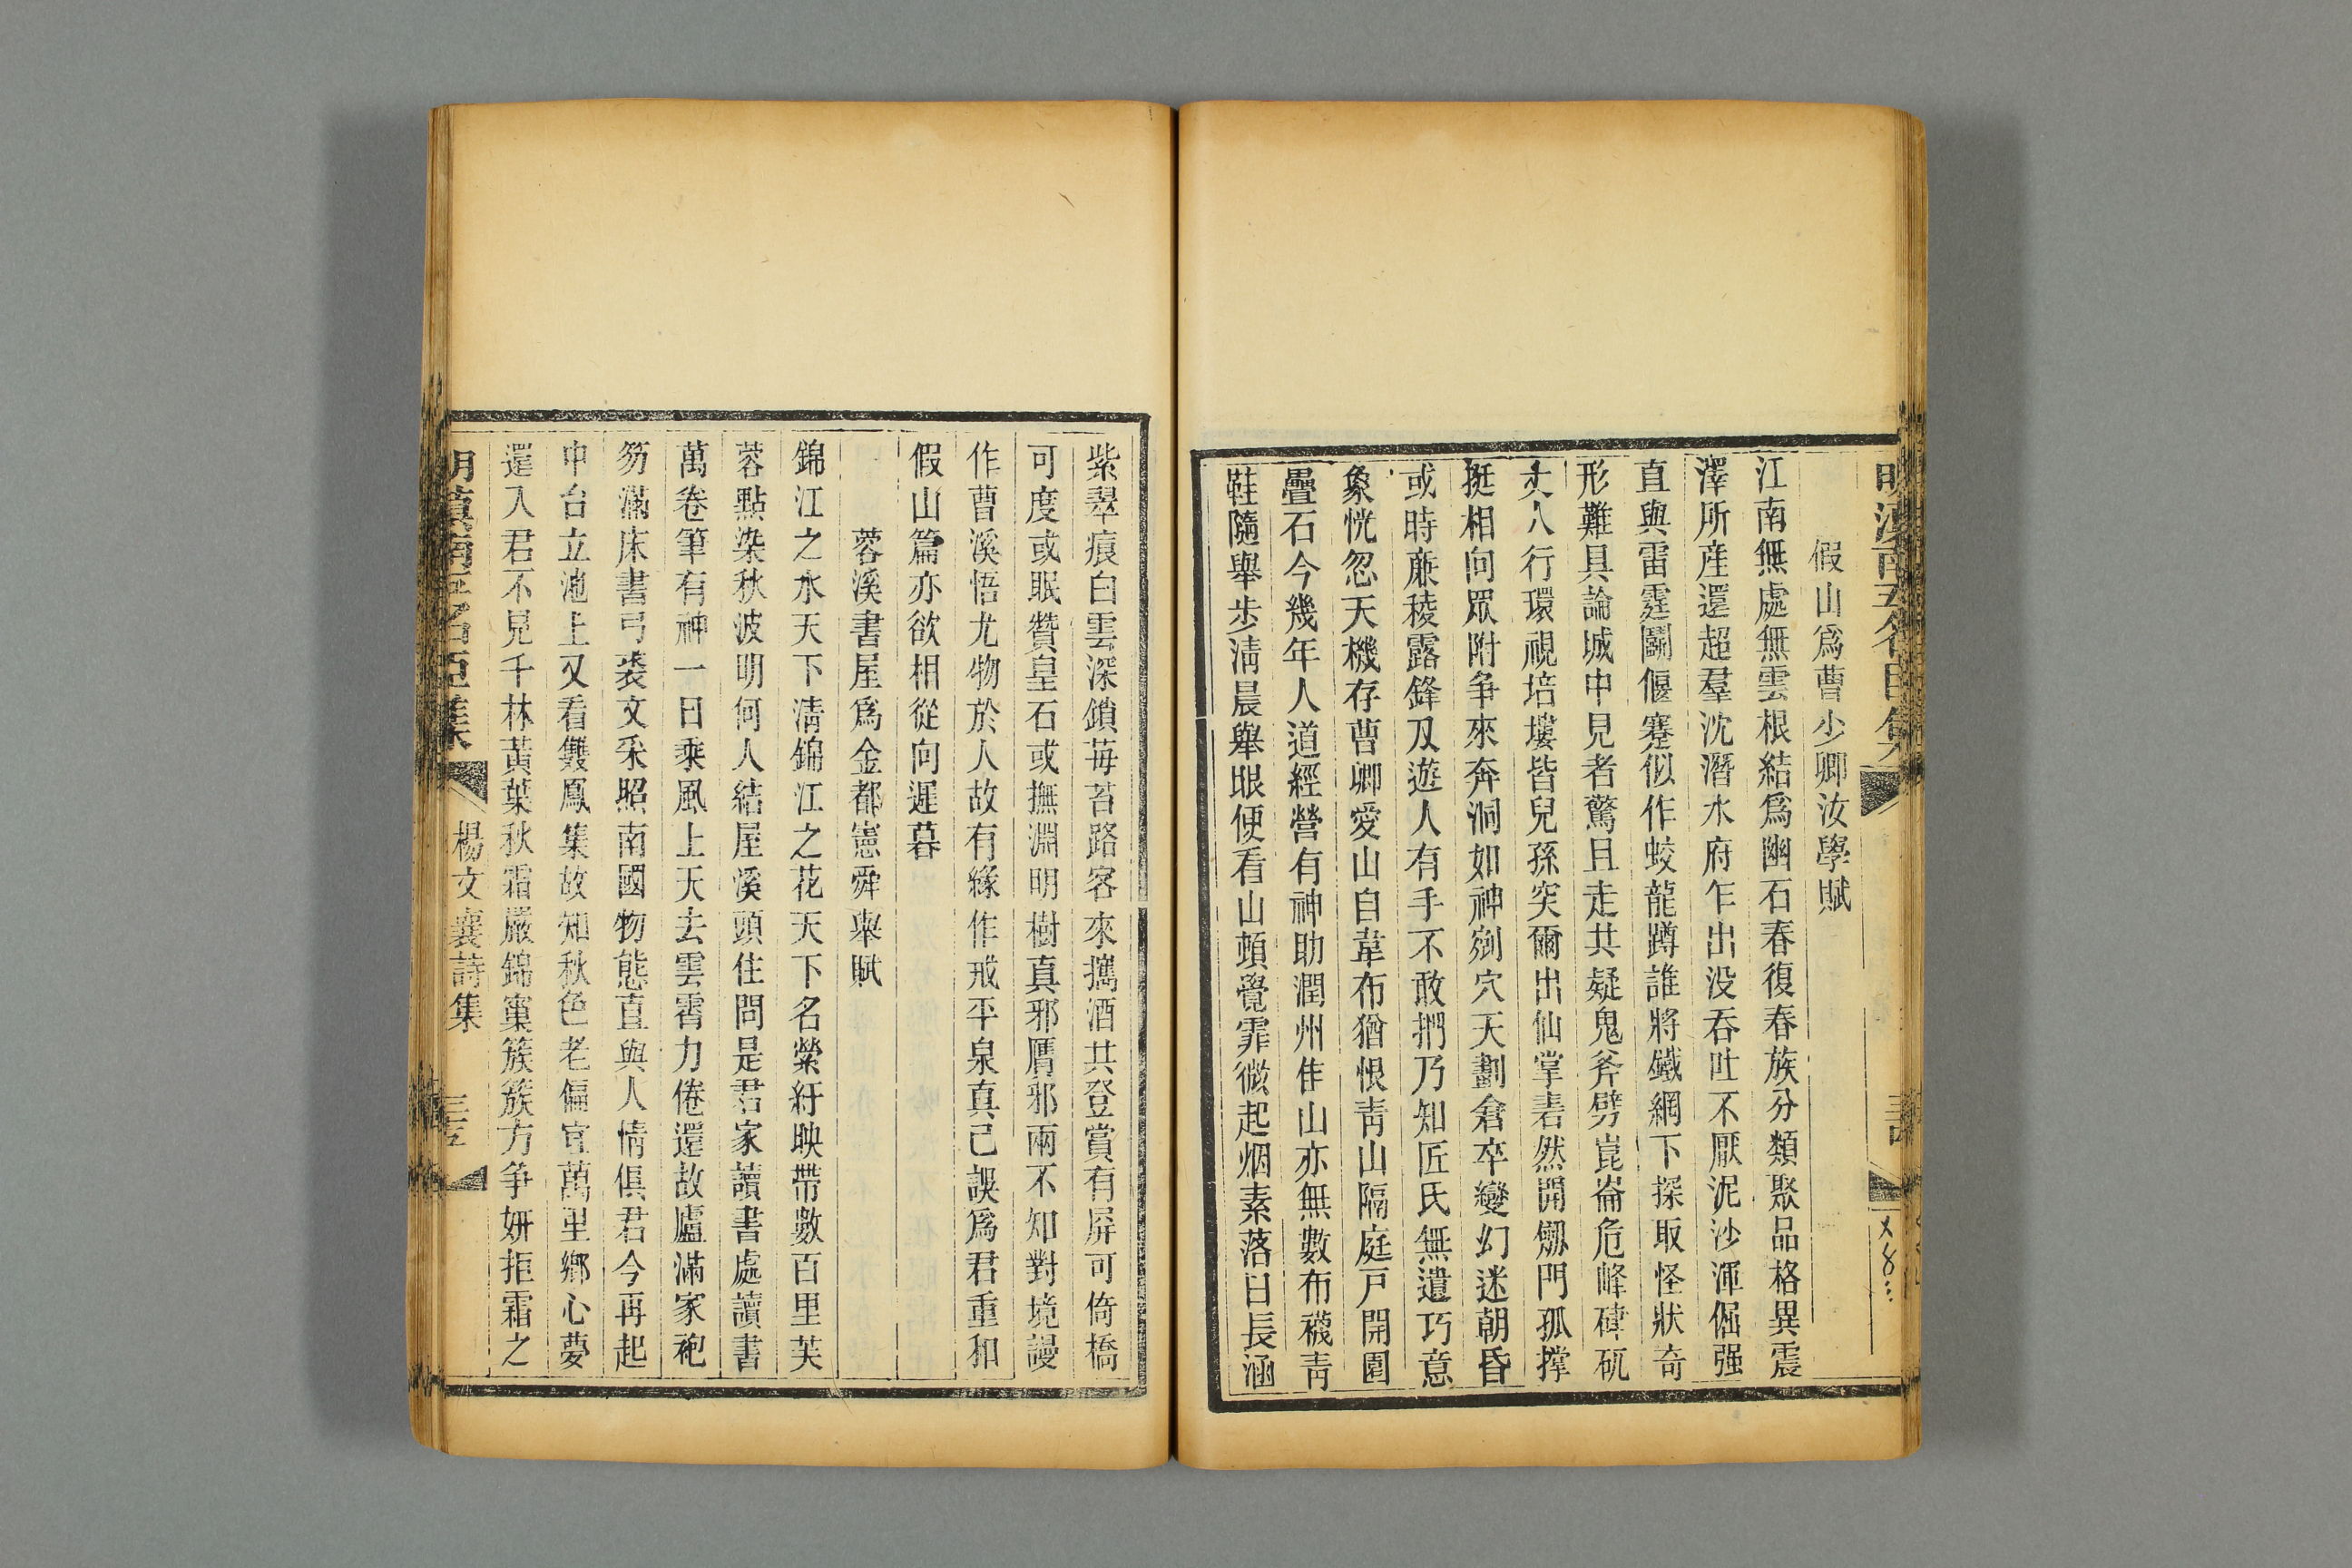 假山爲曹少卿汝學賦
江南無處無雲根結爲幽石春復春族分類聚品格異震
澤所産還超羣沈潛水府乍出没吞吐不厭泥沙渾倔强
直與雷霆鬬偃蹇似作蛟龍蹲誰將鐵網下探取怪狀奇
形難具論城中見者驚且走共疑鬼斧劈崑崙危峰硉矹
丈人行環視培塿皆兒孫突爾出仙掌砉然開劒門孤撑
挺相向眾附争來奔洞如神剜穴天劃倉卒變幻迷朝昏
或時亷稜露鋒刄遊人有手不敢捫乃知匠氏無遺巧意
象恍忽天機存曹卿愛山自韋布猶恨靑山隔庭戸開園
疊石今幾年人道經營有神助潤州隹山亦無數布襪靑
鞋隨舉步淸晨舉眼便看山頓覺霏微起烟素落日長涵
紫翠痕白雲深鎖莓苔路客來攜酒共登賞有屏可倚橋
可度或眠贊皇石或撫淵明樹真邪贋邪兩不知對境謾
作曹溪悟尤物於人故有緣作戒平泉真已誤爲君重和
假山篇亦欲相從向遲暮
蓉溪書屋爲金都憲舜舉賦
錦江之水天下淸錦江之花天下名縈紆映帶數百里芙
蓉點染秋波明何人結屋溪頭住問是君家讀書處讀書
萬卷筆有神一日乘風上天去雲霄力倦還故廬滿家袍
笏滿床書弓裘文采照南國物態直與人情俱君今再起
中台立池上又看雙鳳集故知秋色老偏宜萬里鄉心夢
還入君不見千林黃葉秋霜嚴錦窠簇簇方争妍拒霜之
明滇南五名臣集
楊文襄詩集
三五